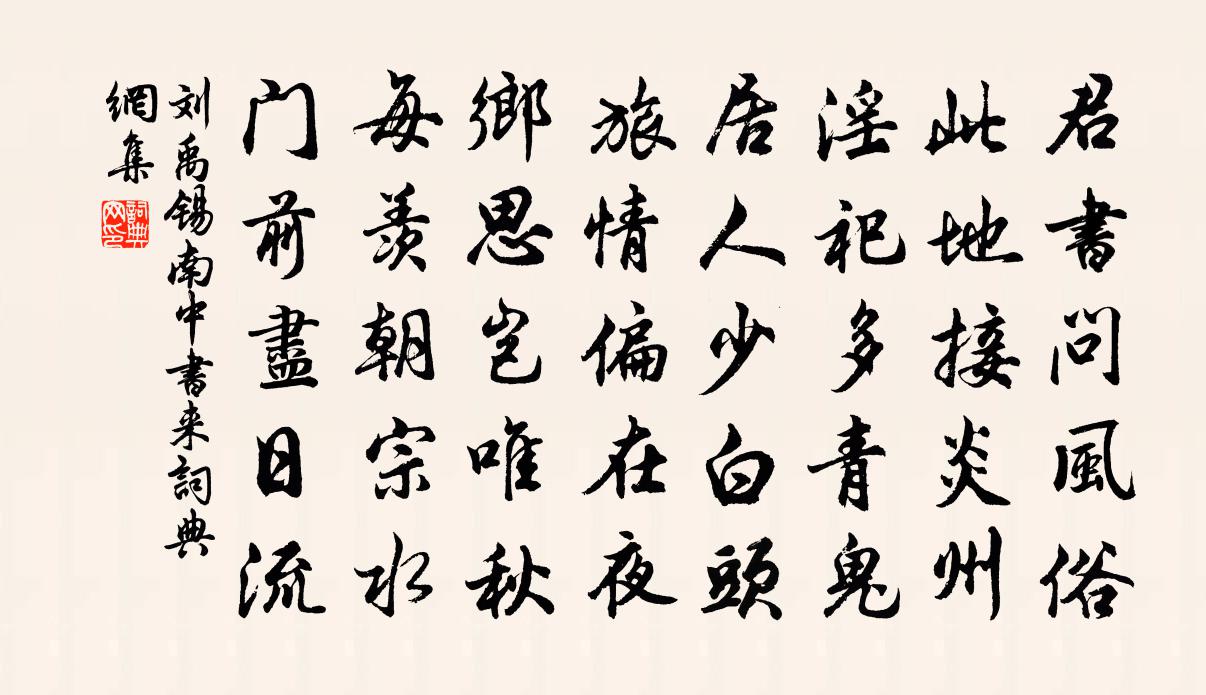 君書問風俗
此地接炎州
淫祀多青鬼
居人少白頭
旅情偏在夜
鄉思豈唯秋
每羨朝宗水
门前盡日流
刘禹锡南中書来詞典
網集
詞典
网印